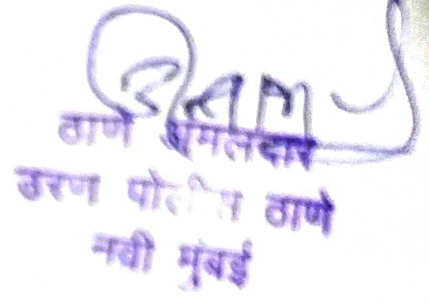 ठाणे अमलदार
उरण पोलीस ठाणे
नवी मुंबई